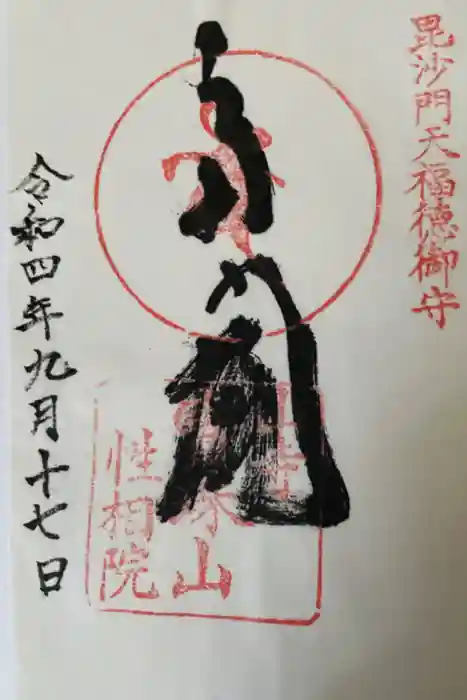 毘沙門天福徳御守
山寺
宝珠山
性相院
令和四年九月十七日